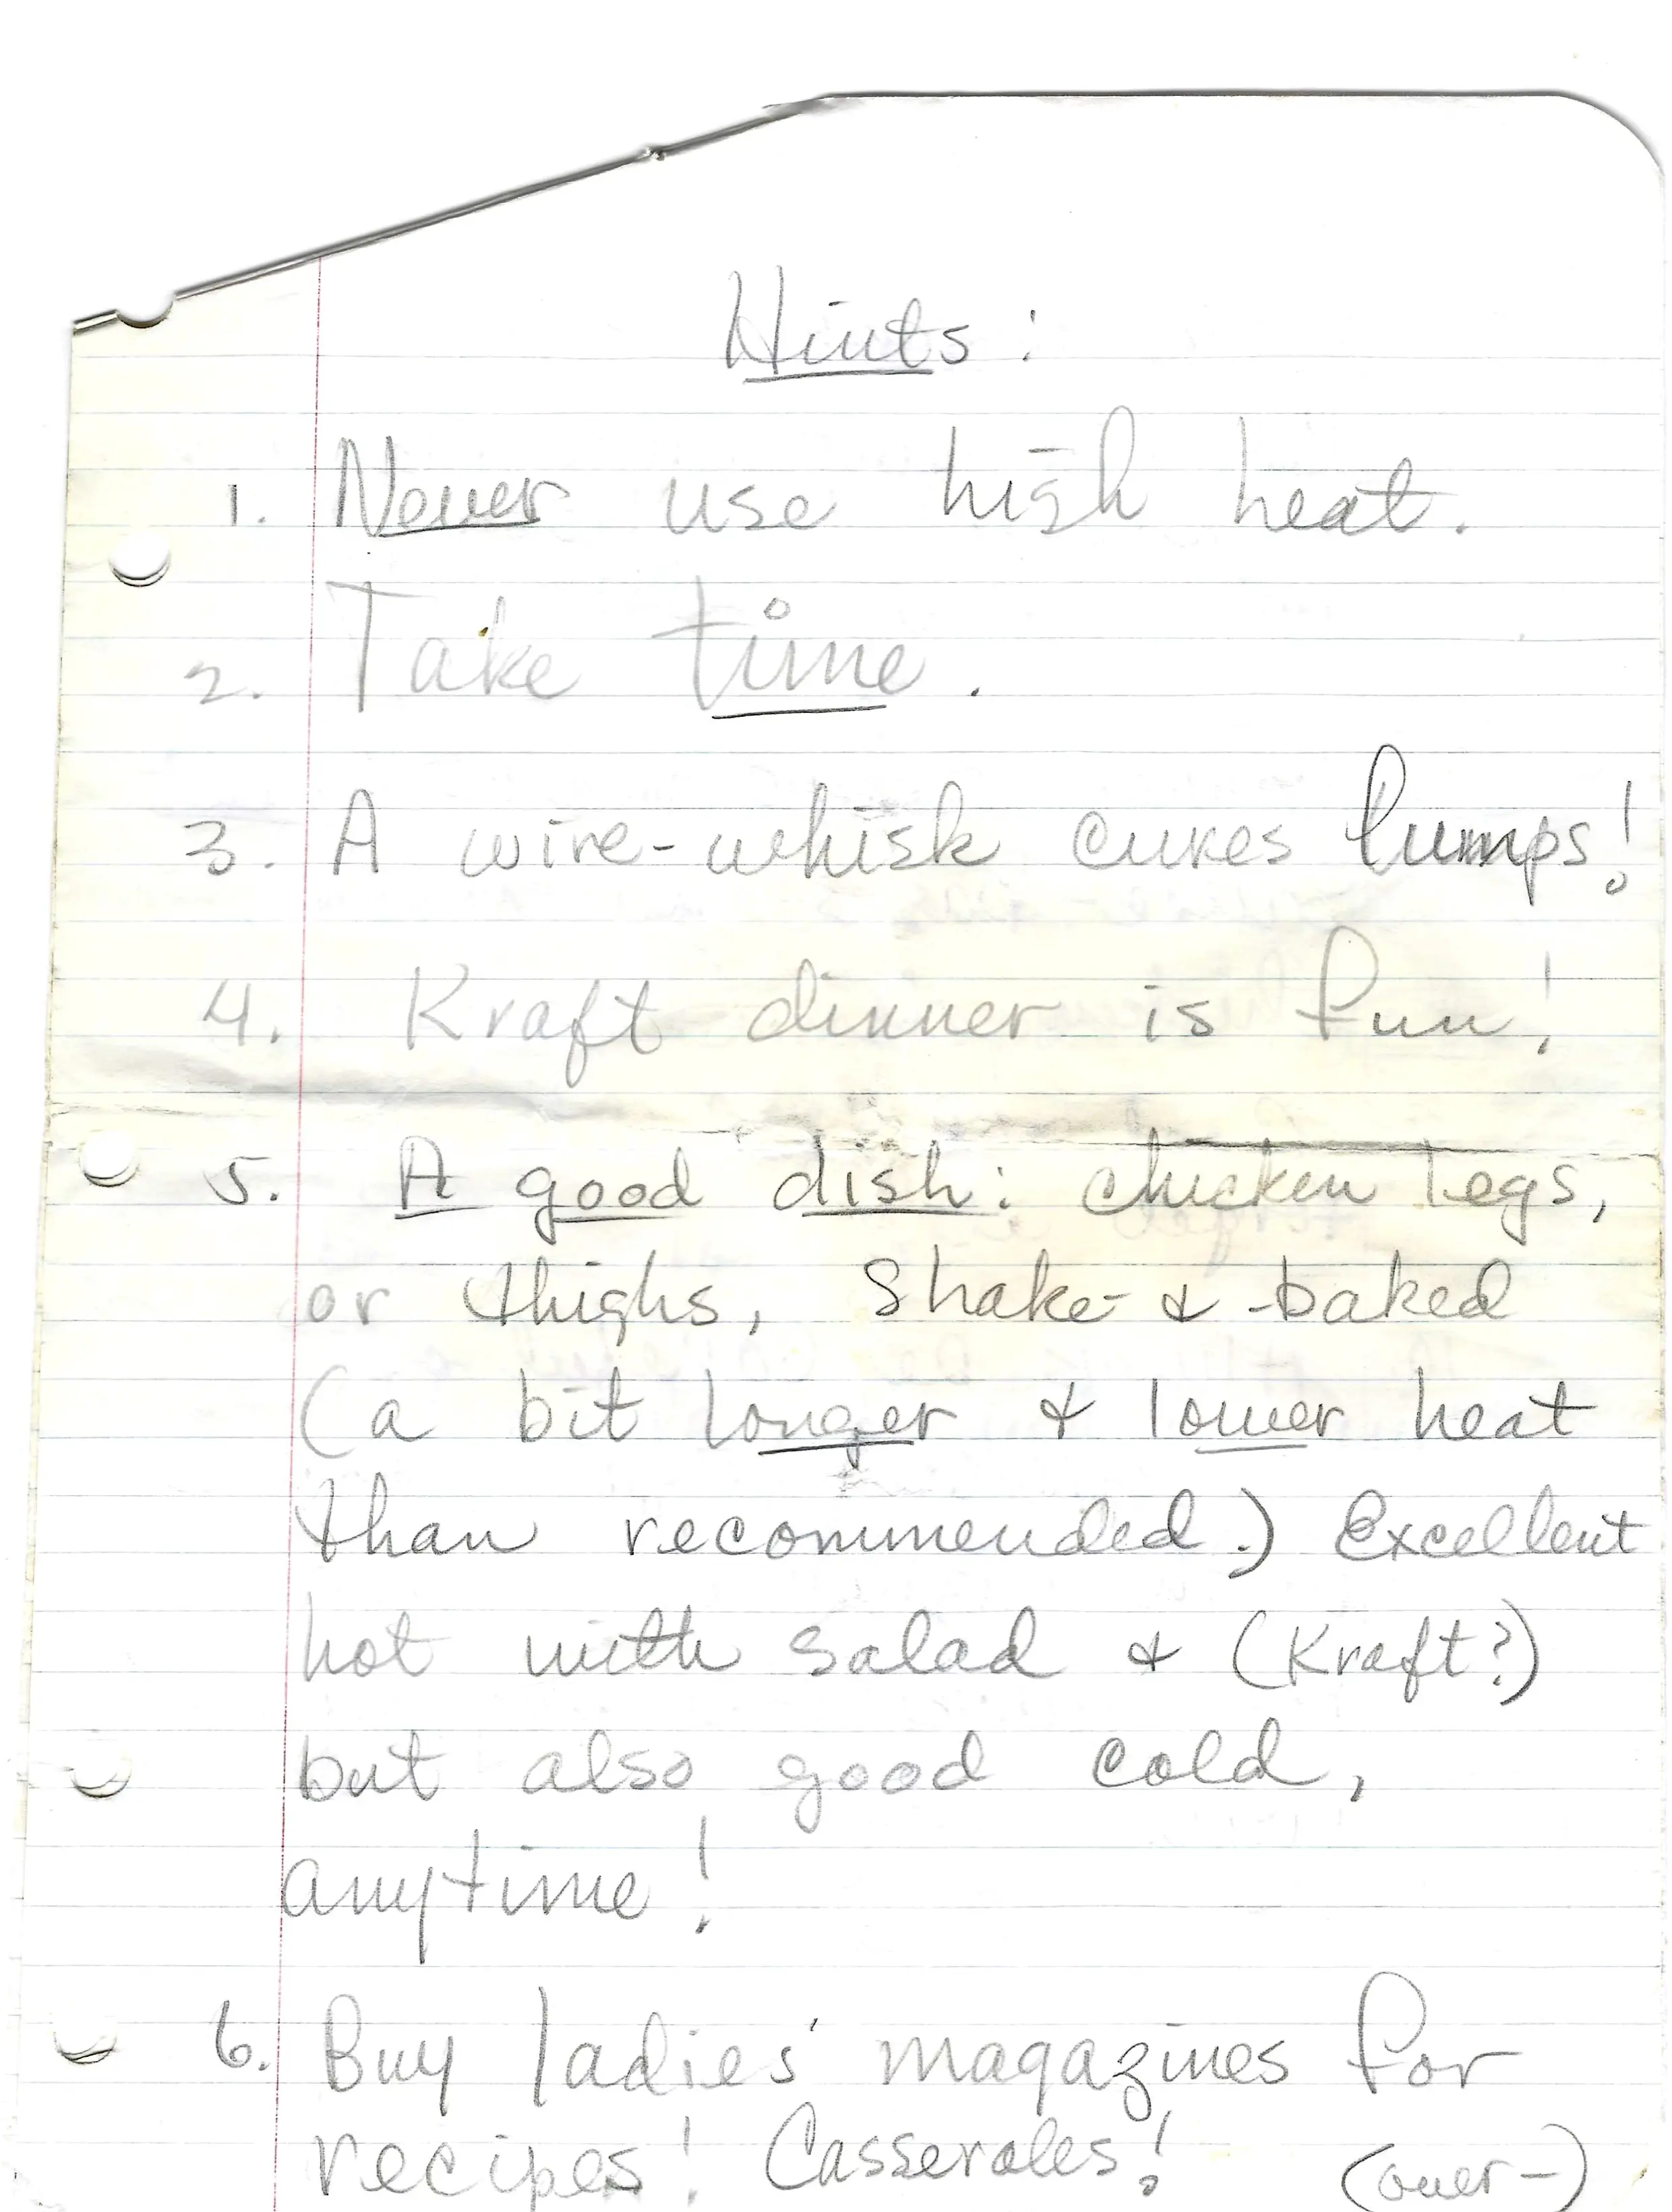 Hints:
1. Never use high heat.
2. Take time.
3. A wire-whisk cures lumps!
4. Kraft dinner is fun!
5. A good dish: chicken legs,
or thighs, Shake-&-baked
(a bit longer & lower heat
than recommended.) Excellent
hot with salad & (Kraft?)
but also good cold,
anytime!
6. Buy ladies' magazines for
recipes! Casseroles!
(over-)